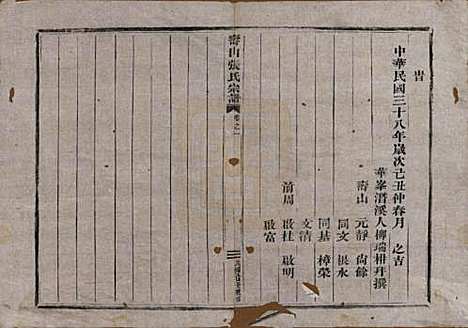 旹
中華民國三十八年歲次己丑仲春月 之吉
華峯潛溪人柳瑞柑拜撰
壽山 元靜 尙餘
同文 根永
同基 樟榮
文清
前周 啟桂 啟明
啟富
壽山張氏宗譜 卷之一